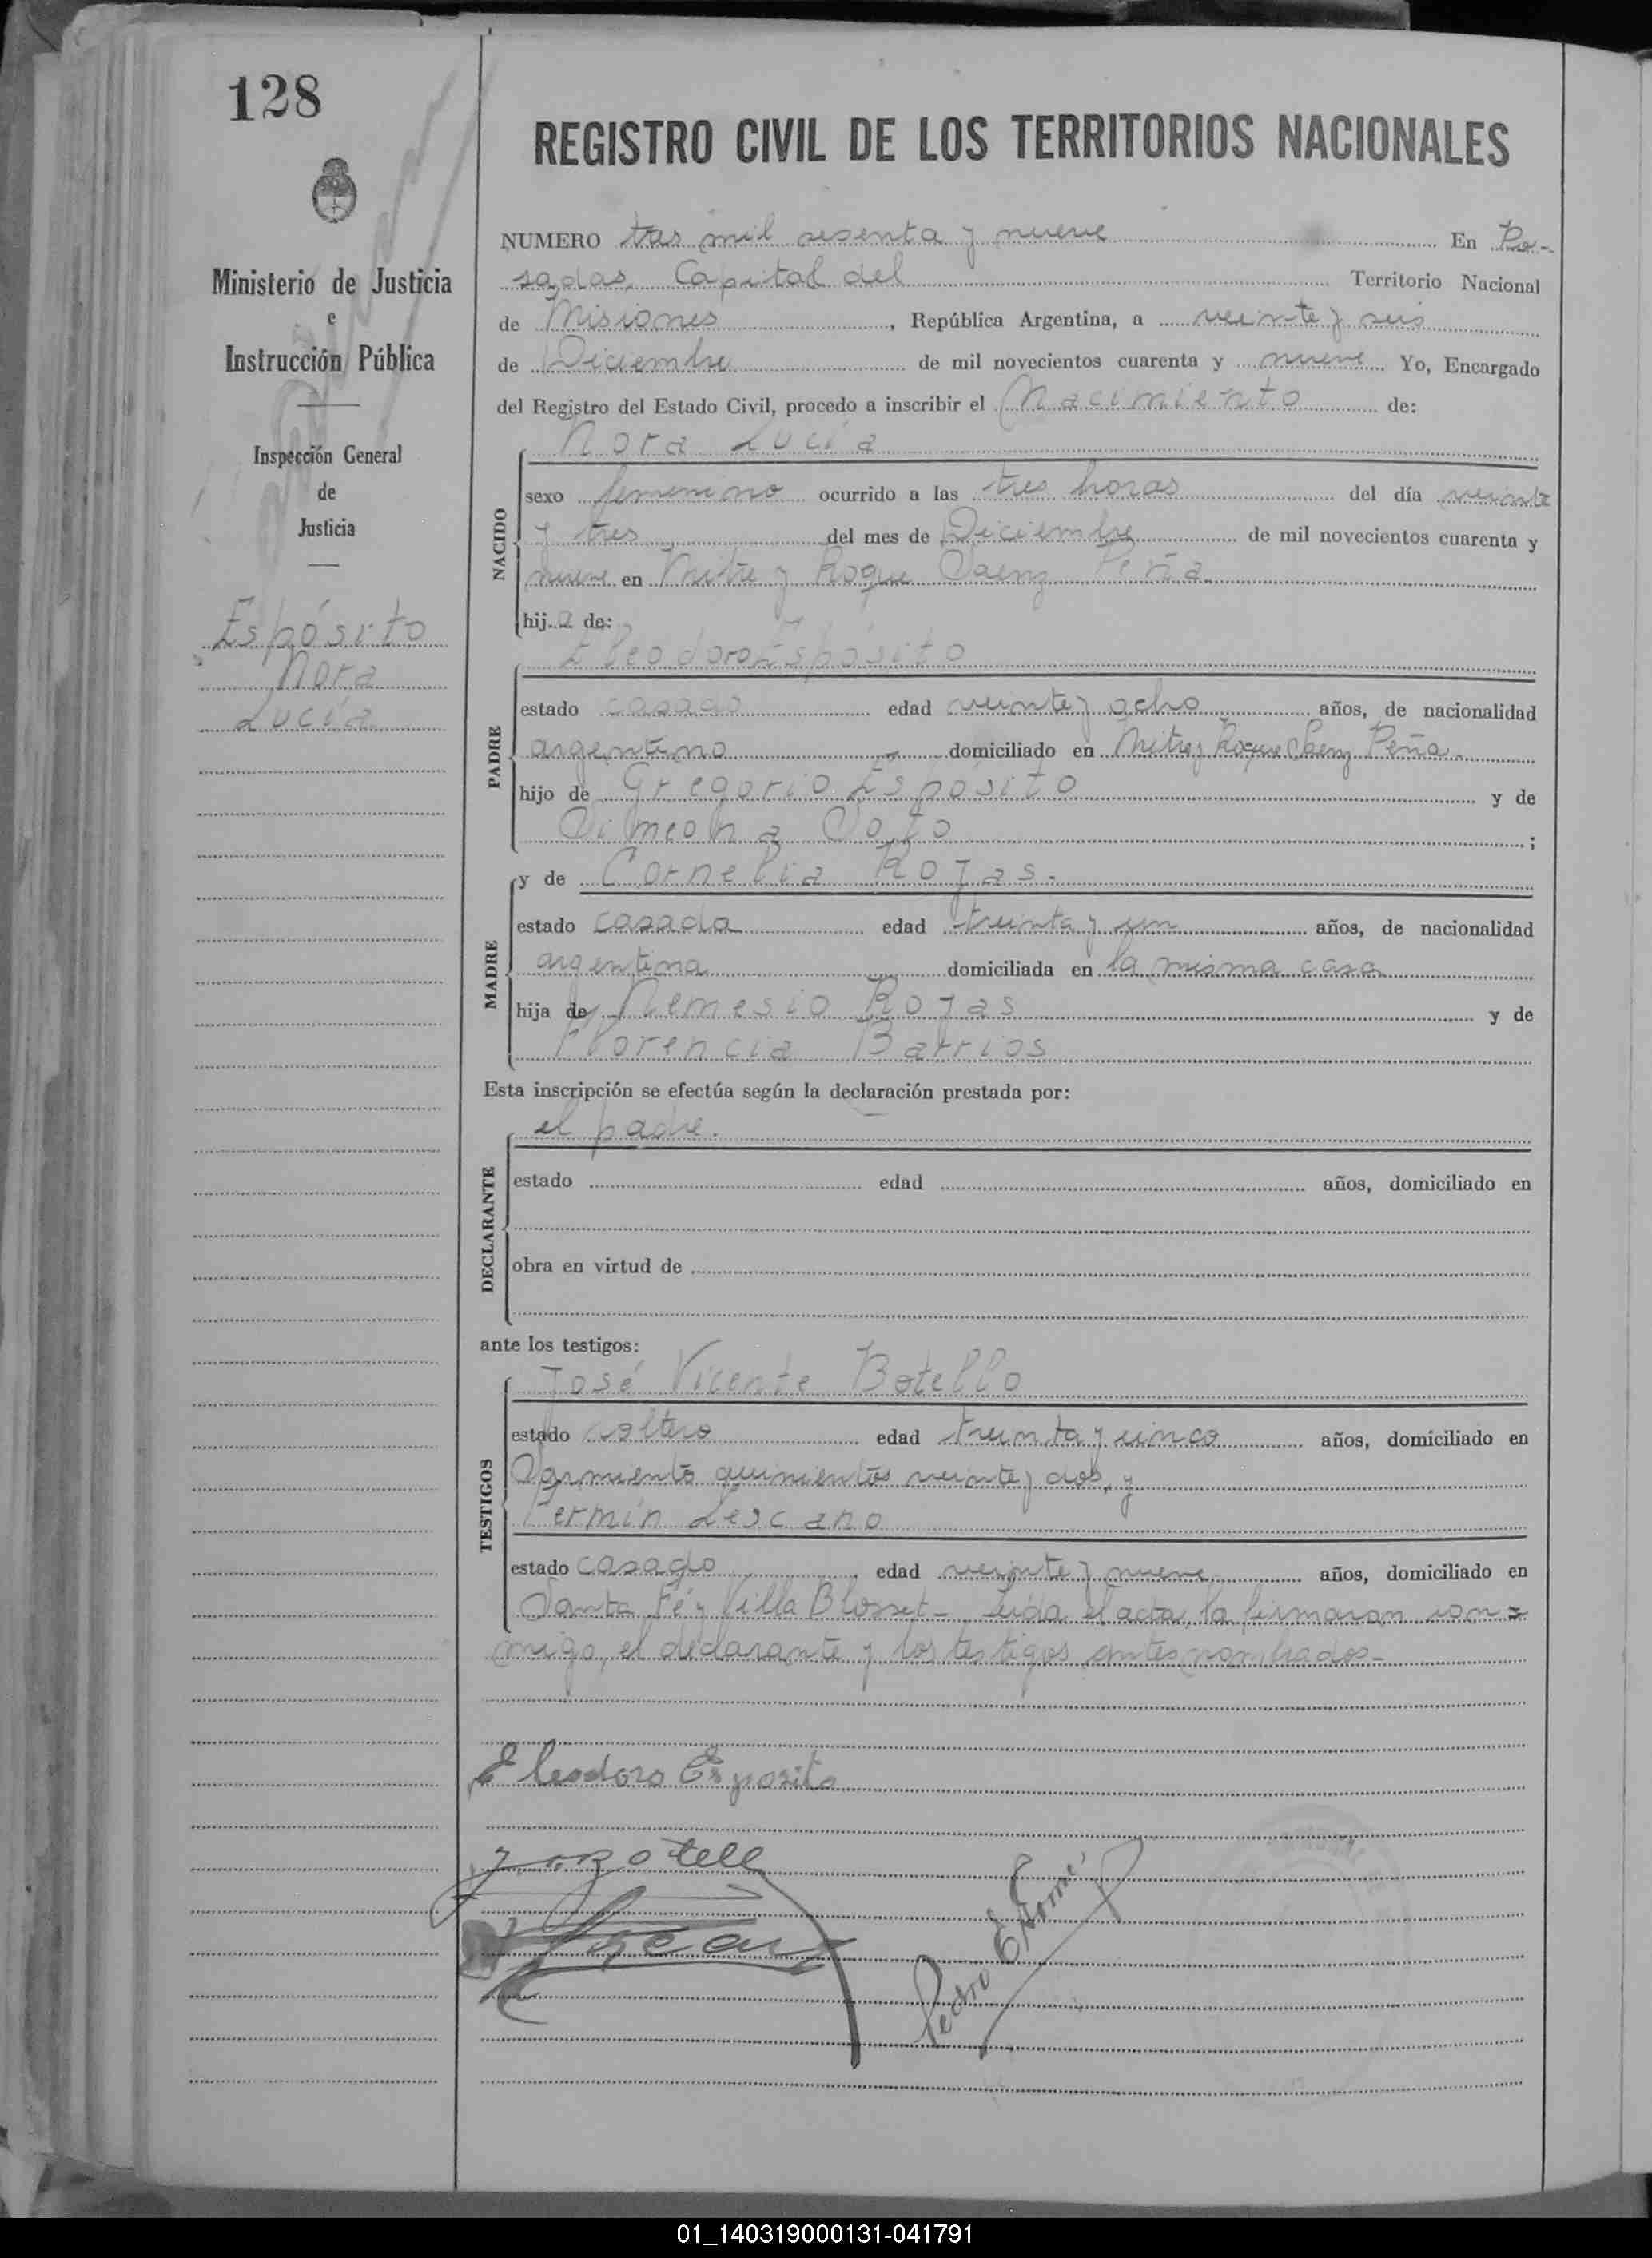 128
Ministerio de Justicia
e
Instrucción Pública
Inspección General
de
Justicia
Espósito
Nora
Lucía
REGISTRO CIVIL DE LOS TERRITORIOS NACIONALES
NUMERO tres mil sesenta y nueve En Po-
sadas, Capital del Territorio Nacional
de Misiones, República Argentina, a veinte y seis
de Diciembre de mil novecientos cuarenta y nueve Yo, Encargado
del Registro del Estado Civil, procedo a inscribir el Nacimiento de:
Nora Lucía
NACIDO
sexo femenino ocurrido a las tres horas del día veinte
y tres del mes de Diciembre de mil novecientos cuarenta y
nueve en Mitre y Roque Saenz Peña
hij a de:
Eleodoro Espósito
PADRE
estado casado edad veinte y ocho años, de nacionalidad
argentino domiciliado en Mitre y Roque Saenz Peña
hijo de Gregorio Espósito y de
Simeona Soto;
MADRE
y de Cornelia Rojas.-
estado casada edad treinta y un años, de nacionalidad
argentina domiciliada en la misma casa
hija de Nemesio Rojas y de
Florencia Barrios
Esta inscripción se efectúa según la declaración prestada por:
el padre.
DECLARANTE
estado edad años, domiciliado en
obra en virtud de
ante los testigos:
José Vicente Botello
TESTIGOS
estado soltero edad treinta y cinco años, domiciliado en
Sarmiento quinientos veinte y dos, y
Fermín Lescano
estado casado edad veinte y nueve años, domiciliado en
Santa Fé y Villa Blosset- Leida el acta, la firmaron con=
migo, el declarante y los testigos antes nombrados-
Eleodoro Esposito
Pedro E
01_140319000131-041791